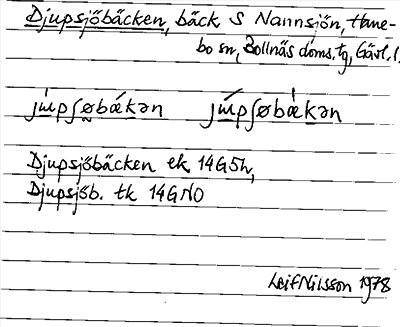 Djupsjöbäcken, bäck S Nannsjön, Hane-
bo sn, Bollnäs doms. tg, Gävl. l.
Djupsjöbäcken ek 14G5h,
Djupsjöb. tk 14G NO
Leif Nilsson 1978